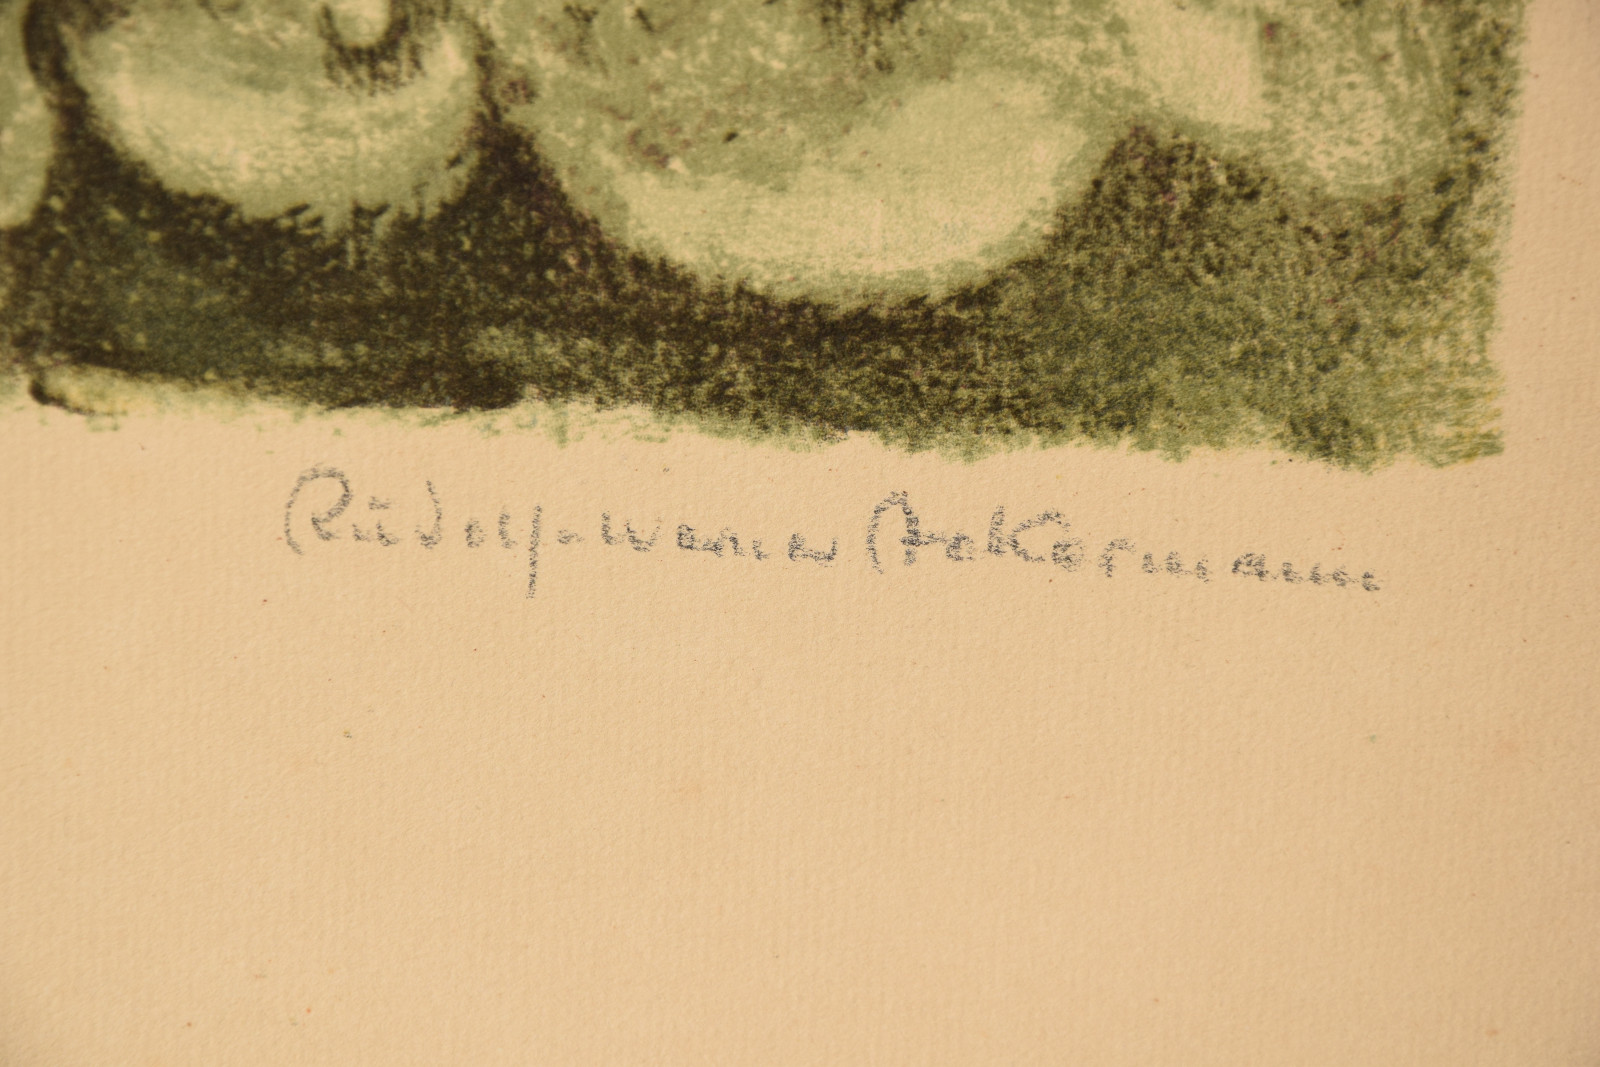 Rudolf-Werner Ackermann